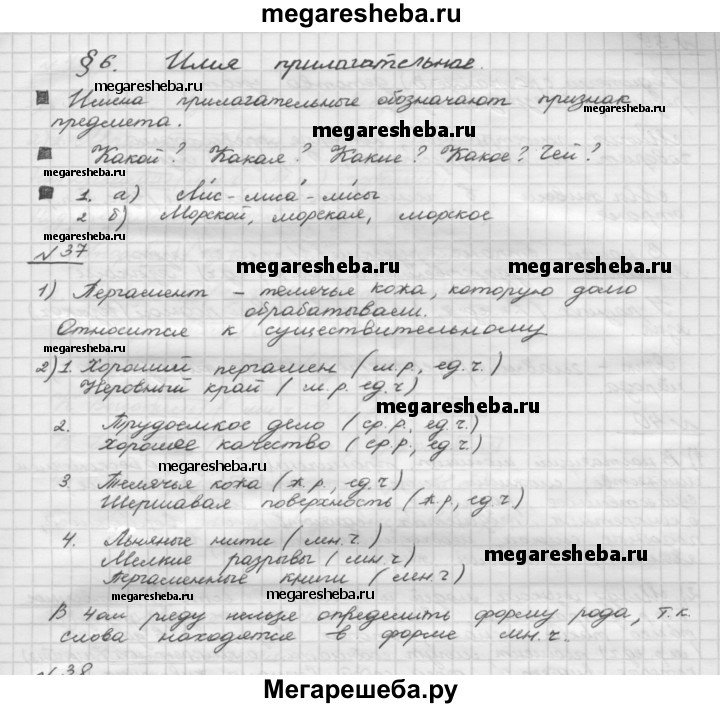 megaresheba.ru
§6. Имя прилагательное.
megaresheba.ru
Имена прилагательные обозначают признак
предмета.
megaresheba.ru
Какой? Какая? Какие? Какое? Чей?
megaresheba.ru
1. а) Лис - лиса́ - ли́сы
2 б) Морской, морская, морское
megaresheba.ru
№37
megaresheba.ru megaresheba.ru
1) Пергамент - телячья кожа, которую долго
обрабатывали.
Относится к существительному
megaresheba.ru
2) 1. Хороший пергамен (м.р., ед.ч.)
Неровный край (м.р. ед.ч)
megaresheba.ru
2. Трудоемкое дело (ср.р., ед.ч.)
Хорошее качество (ср.р, ед.ч.)
megaresheba.ru
3. Телячья кожа (ж.р., ед.ч)
Шершавая поверхность (ж.р, ед.ч.)
4. Льняные нити (мн.ч.)
Мелкие разрывы (мн.ч)
megaresheba.ru
Пергаменные книги (мн.ч)
megaresheba.ru megaresheba.ru
В 4ом ряду нельзя определить форму рода, т.к.
слова находятся в форме мн.ч.
№38
Мегарешеба.ру